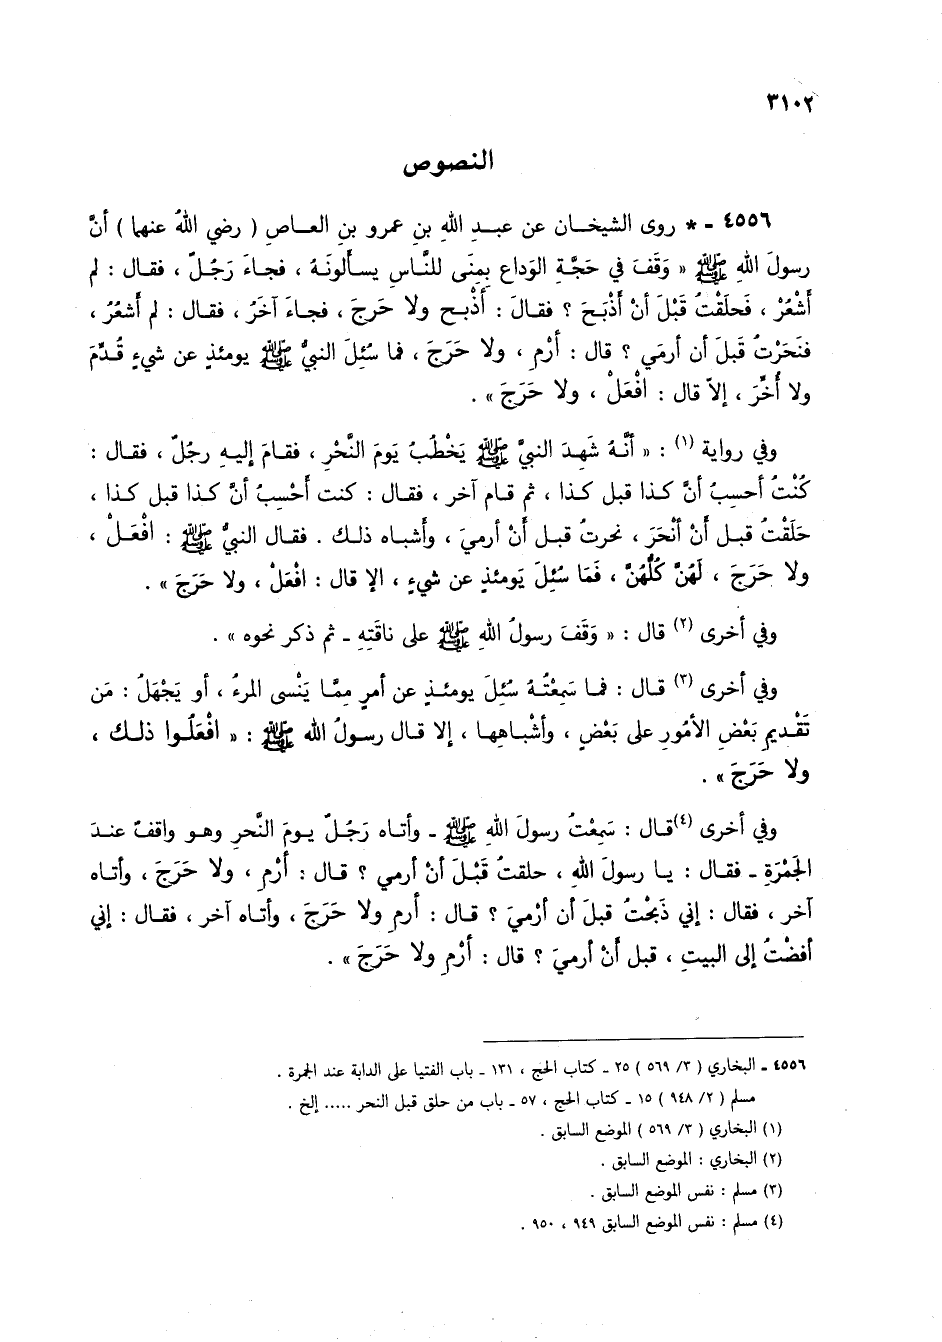 ٣١٠٢
النصوص
٤٥٥٦ - * روى الشيخـان عن عبـد اللهِ بنِ عمرو بنِ العـاصِ ( رضي اللهُ عنهما ) أنَّ
رسولَ اللهِ ﷺ « وَقَفَ في حَجَّةِ الوَداع بِمِنًى للنَّاسِ يسـألونَـهُ ، فجاءَ رَجُـلٌ ، فقـال : لم
أَشْعُرْ ، فَحلَقْتُ قَبْلَ أنْ أَذْبَحَ ؟ فقـالَ : أَذْبـح ولا حَرجَ ، فجـاءَ آخَرُ ، فقـال : لم أشعُرْ ،
فنَحَرْتُ قبلَ أن أرمَي ؟ قال : أَرْمِ ، ولا حَرَجَ ، فما سُئِلَ النبيُّ ﷺ يومئذٍ عن شيءٍ قُدِّمَ
ولا أُخِّرَ ، إلاّ قال : افْعَلْ ، ولا حَرَجَ » .
وفي رواية (١) : « أنَّـهُ شَهِـدَ النبيَّ ﷺ يَخْطُبُ يَومَ النَّحْرِ ، فقـامَ إليـهِ رجُلٌ ، فقـال :
كُنْتُ أحسِبُ أنَّ كذا قبل كذا ، ثم قـام آخر ، فقـال : كنت أحْسِبُ أنَّ كـذا قبل كـذا ،
حَلَقْتُ قبـل أَنْ أنْحَرَ ، نحرتُ قبـل أَنْ أرميَ ، وأشباه ذلـك . فقـال النبيُّ ﷺ : افْعَـلْ ،
ولا حَرَجَ ، لَهُنَّ كُلُّهُنَّ ، فَمَا سُئِلَ يَومئـذٍ عن شيءٍ ، الا قال : افْعَلْ ، ولا حَرَجَ » .
وفي أخرى (٢) قال : « وَقَفَ رسولُ اللهِ ﷺ على ناقَتِهِ - ثم ذكر نحوه » .
وفي أخرى (٣) قـال : فما سَمِعْتُـهُ سُئِلَ يومئـذٍ عن أمرٍ ممَّـا يَنْسى المرءُ ، أو يَجْهَلُ : مَن
تَقْـديمِ بَعْضِ الأمُورِ على بَعْضٍ ، وأشْبـاهِهـا ، إلا قـال رسولُ الله ﷺ : « افْعَلُـوا ذلـك ،
ولا حَرَجَ » .
وفي أخرى (٤)قـال : سَمِعْتُ رسولَ اللهِ ﷺ - وأتـاه رَجُـلٌ يـومَ النَّحرِ وهـو واقفٌ عنـدَ
الجَمْرَةِ - فقـال : يـا رسولَ اللهِ ، حلقتُ قَبْـلَ أنْ أرمي ؟ قـال : أَرْمِ ، ولا حَرَجَ ، وأتـاه
آخر ، فقال : إني ذَبَحْتُ قبلَ أن أرْميَ ؟ قـال : أرمِ ولا حَرَجَ ، وأتـاه آخر ، فقـال : إني
أفضْتُ إلى البيتِ ، قبل أَنْ أرميَ ؟ قال : أرْمِ ولا حَرَجَ » .
٤٥٥٦ - البخاري ( ٣/ ٥٦٩ ) ٢٥ - كتاب الحج ، ١٣١ - باب الفتيا على الدابة عند الجمرة .
مسلم ( ٢/ ٩٤٨ ) ١٥ - كتاب الحج ، ٥٧ - باب من حلق قبل النحر ..... إلخ .
(١) البخاري ( ٣/ ٥٦٩ ) الموضع السابق .
(٢) البخاري : الموضع السابق .
(٣) مسلم : نفس الموضع السابق .
(٤) مسلم : نفس الموضع السابق ٩٤٩ ، ٩٥٠ .